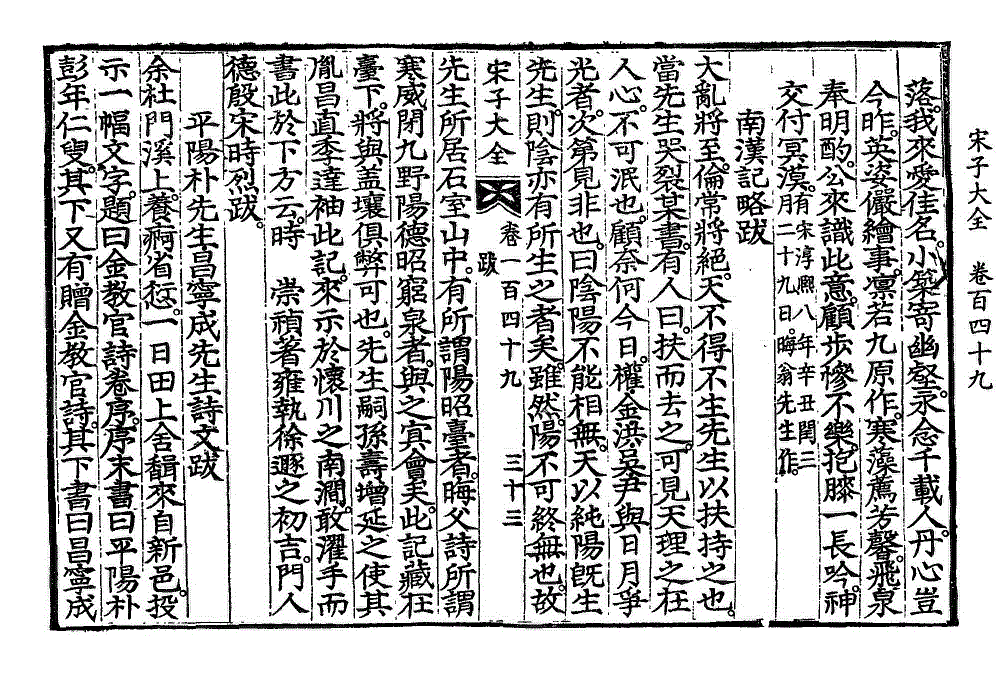 宋子大全　卷百四十九
落。我來愛佳名。小築寄幽壑。永念千載人。丹心豈
今昨。英姿儼繪事。凜若九原作。寒藻薦芳馨。飛泉
奉明酌。公來識此意。顧步慘不樂。抱膝一長吟。神
交付冥漠。有宋淳熙八年辛丑閏三
月二十九日。晦翁先生作。
南漢記略跋
大亂將至。倫常將絕。天不得不生先生以扶持之也。
當先生哭裂某書。有人曰。扶而去之。可見天理之在
人心。不可泯也。顧奈何今日。權金洪吳尹與日月爭
光者。次第見非也。曰陰陽不能相無。天以純陽旣生
先生。則陰亦有所生之者矣。雖然。陽不可終無也。故
宋子大全　卷一百四十九　三十三
跋
先生所居石室山中。有所謂陽昭臺者。晦父詩所謂
寒威閉九野陽德昭窮泉者。與之冥會矣。此記藏在
臺下。將與蓋壤俱弊可也。先生嗣孫壽增延之使其
胤昌直季達袖此記。來示於懷川之南澗。敢濯手而
書此於下方云。時　崇禎著雍執徐遯之初吉。門人
德殷宋時烈跋。
平陽朴先生昌寧成先生詩文跋
余杜門溪上。養痾省愆。一日田上舍䎖來自新邑。投
示一幅文字。題曰金教官詩卷序。序末書曰平陽朴
彭年仁叟。其下又有贈金教官詩。其下書曰昌寧成